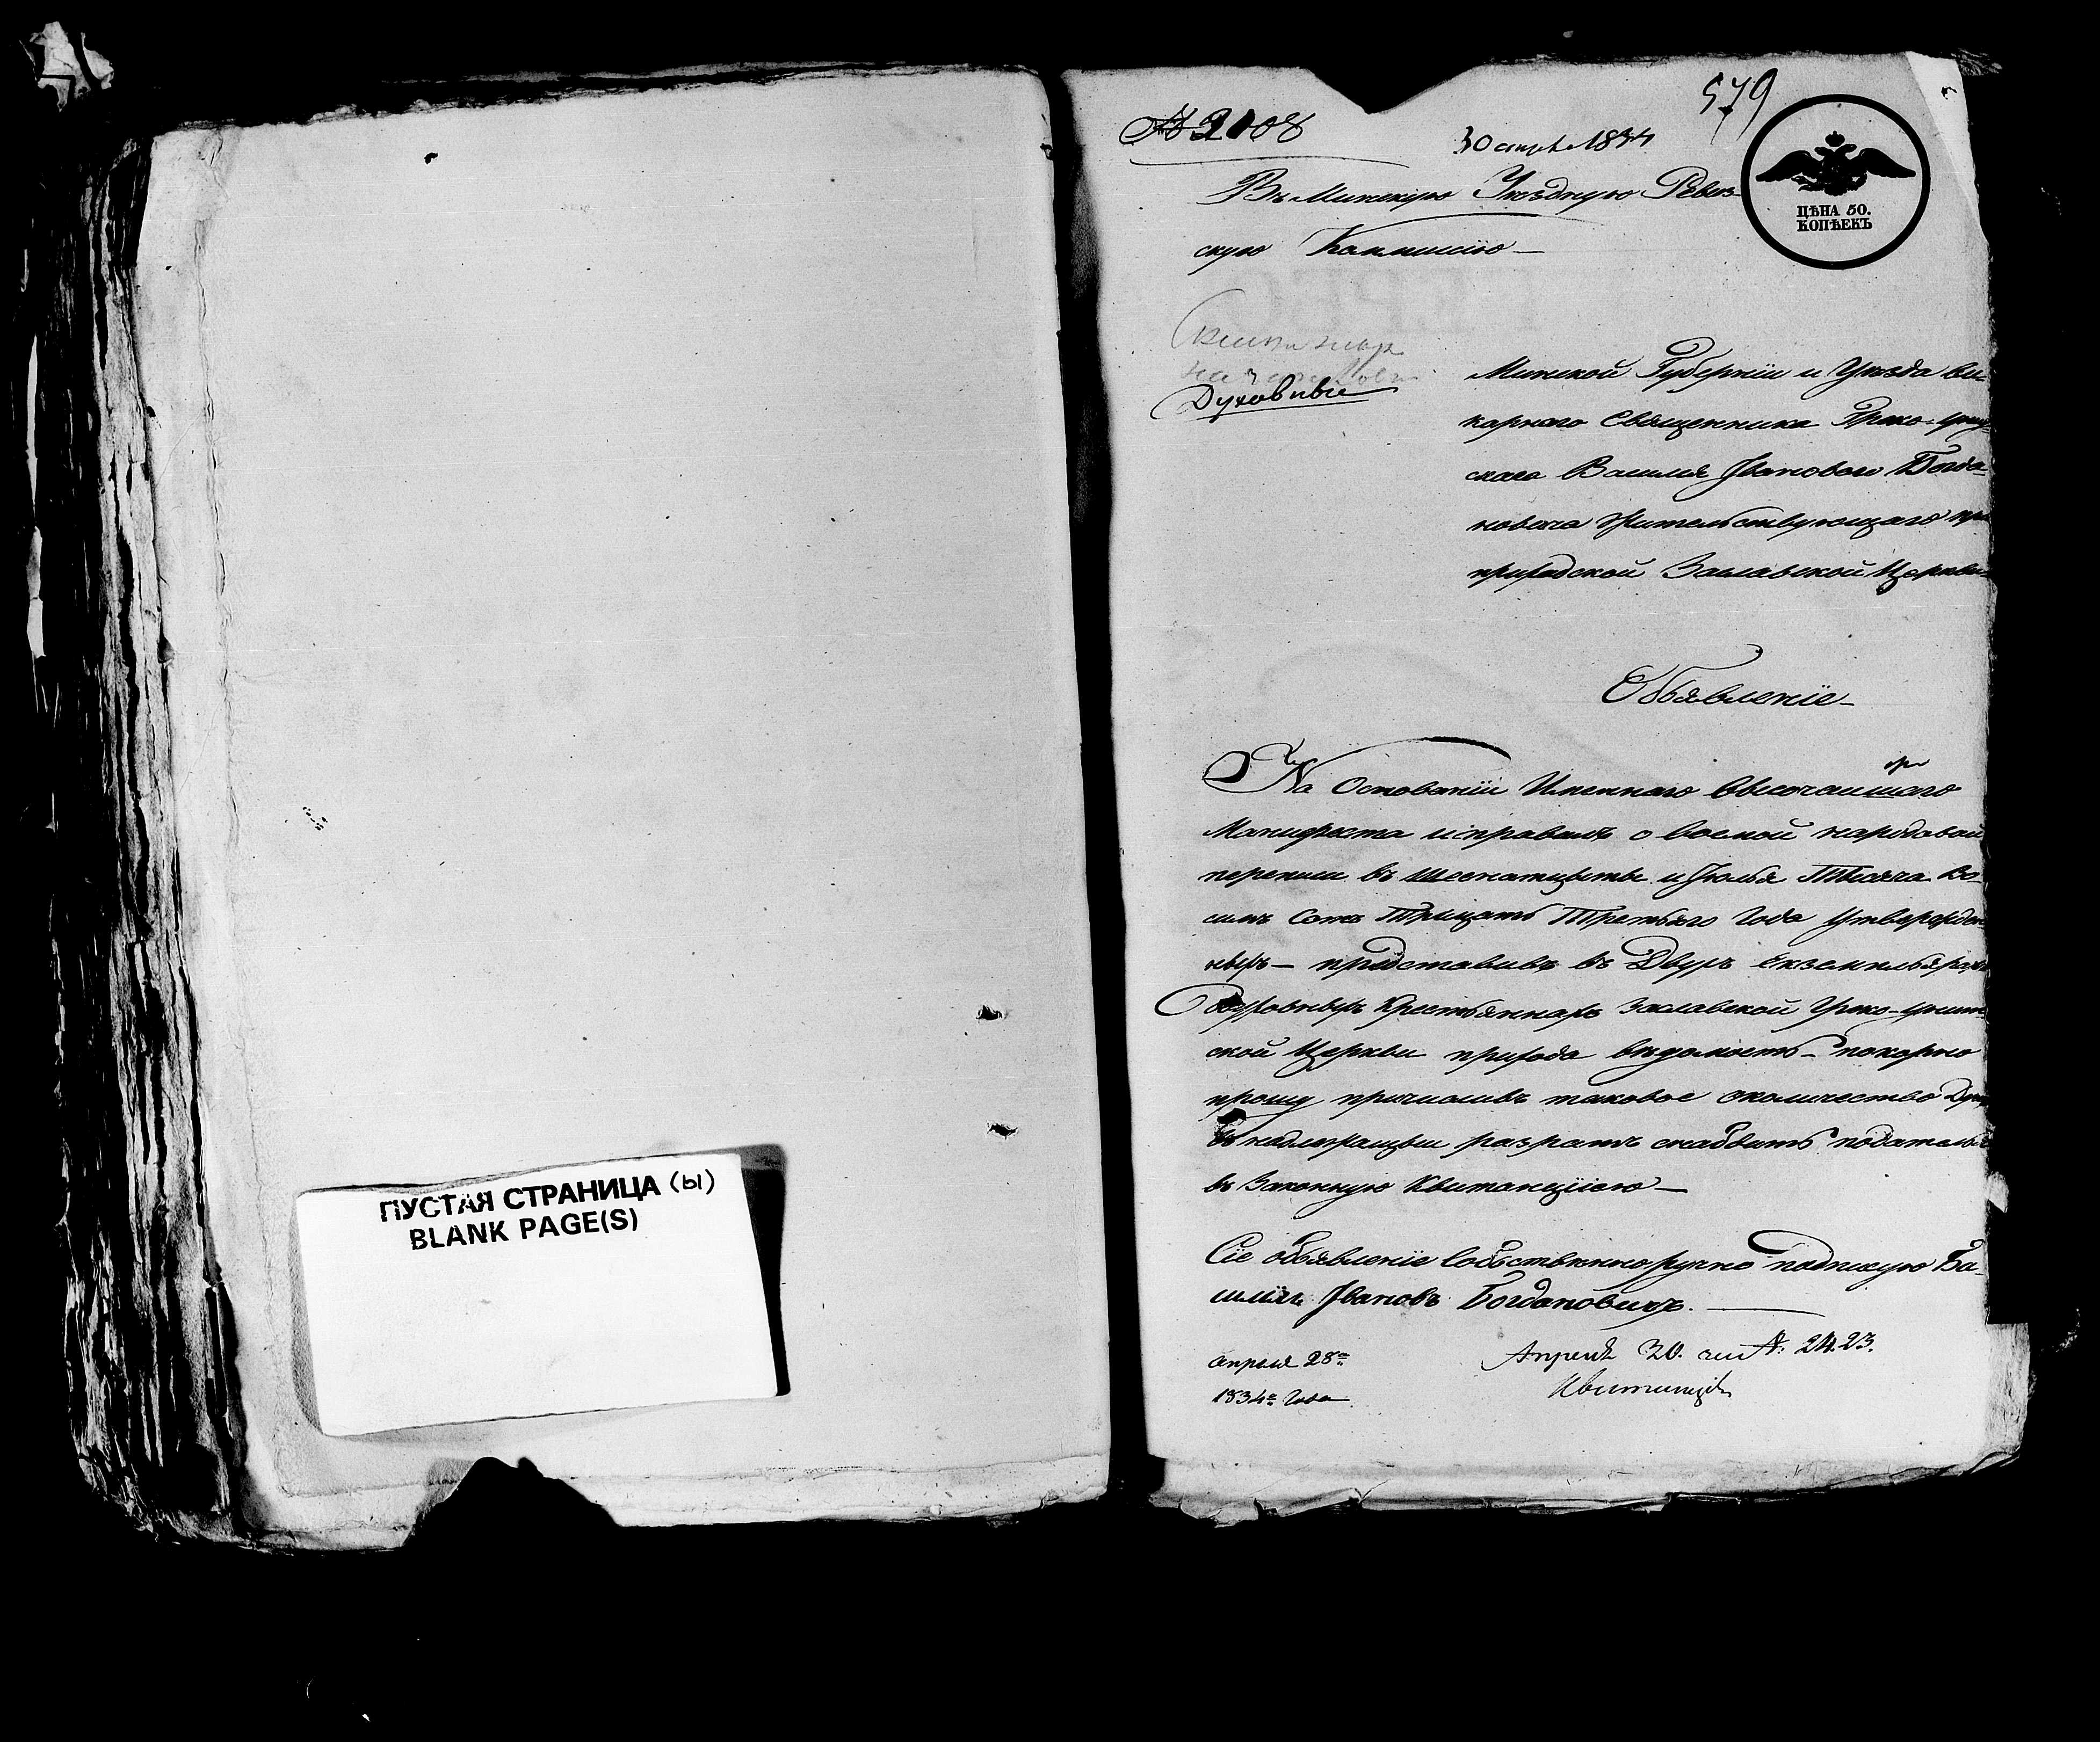 ПУСТАЯ СТРАНИЦА (Ы)
BLANK PAGE(S)
579
№ 2108
30 апреля 1834
ЦѢНА 50.
КОПѢЕКЪ
Въ Минскую Уѣздную Ревиз
скую Коммисію —
Духовные
Минской Губерніи и Уѣзда ви-
карнаго Священника Греко-уни
скаго Василія Іванового Богда-
новича Жительствующаго при
приходской Заславской Церкви
Объявленіе —
На Основаніи Именнаго Высочайшаго
Манифеста и правилъ о восмой народовой
переписи въ Шеснатцеты Іюлья Тысяча Во-
симъ Сотъ Трицать Третьяго Года Утвержден
ныхъ — представивъ въ Двухъ Екземпльярахъ
Духовныхъ Крестьянахъ Заславской Греко-унит
ской Церкви прихода вѣдомость — покорно
прошу причисливъ таковое околичество Душъ
въ надлежащыи разрятъ снабдить подателья
въ Законную Квитанцыею —
Сіе объявленіе Собственноручно подписую Ва-
силій Івановъ Богдановичъ. —
апреля 28го
1834го Года
Апреля 30. за № 2423.
Квитанція